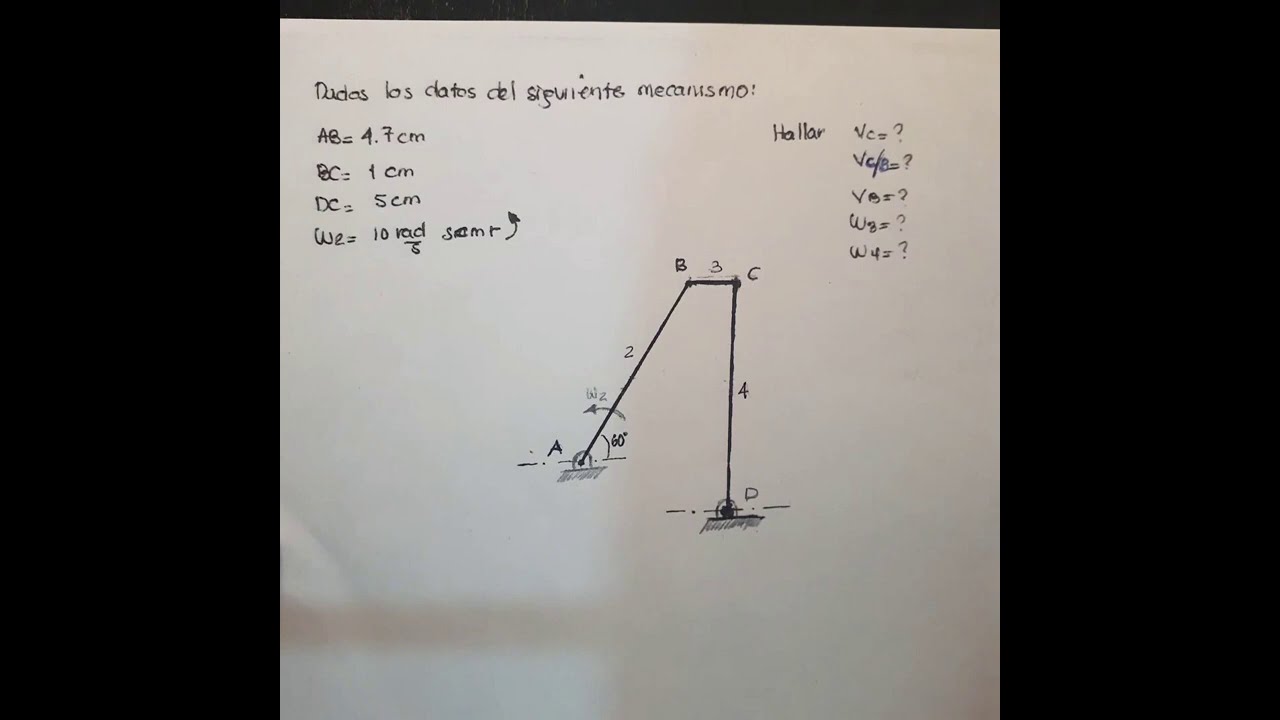 Dadas los datos del siguiente mecanismo:
AB= 4.7cm
BC= 1 cm
DC= 5cm
W2= 10 rad/s
Hallar Vc= ?
Vc/B= ?
VB= ?
W3= ?
W4= ?
B 3 C
2
4
W2
A 60°
D